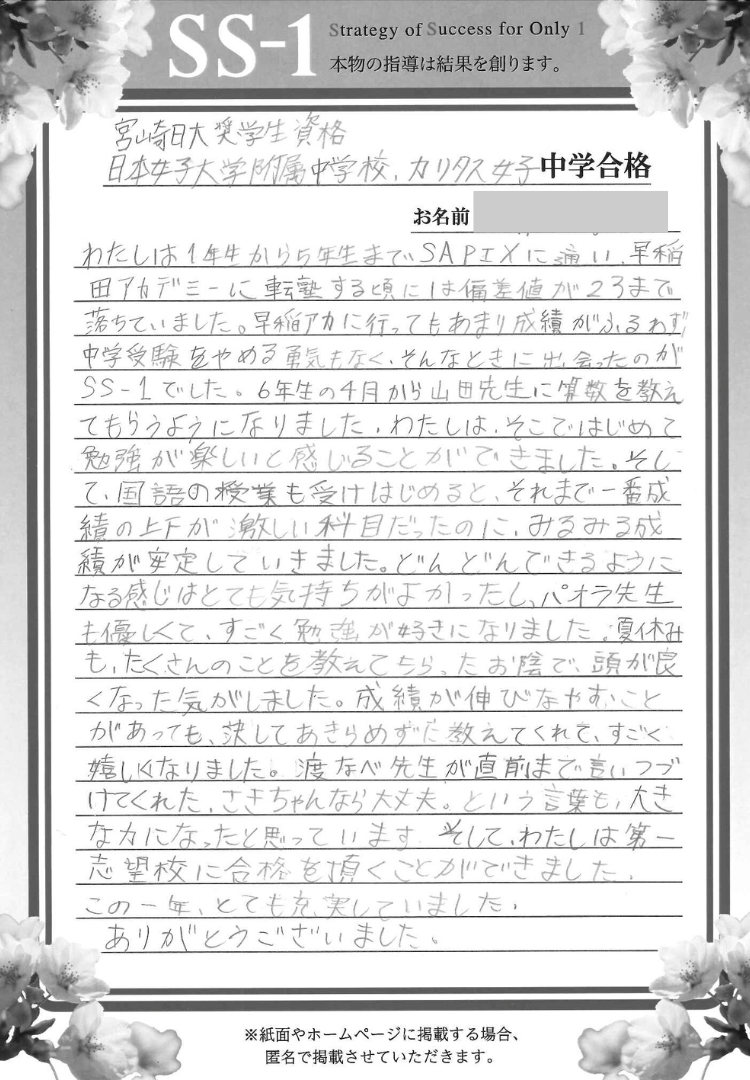 SS-1
Strategy of Success for Only 1
本物の指導は結果を創ります。
宮崎日大奨学生資格
日本女子大学附属中学校、カリタス女子 中学合格
お名前
わたしは1年生から5年生までSAPIXに通い、早稲
田アカデミーに転塾する頃には偏差値が23まで
落ちていました。早稲アカに行ってもあまり成績がふるわず
中学受験をやめる勇気もなく、そんなときに出会ったのが
SS-1でした。6年生の4月から山田先生に算数を教え
てもらうようになりました。わたしは、そこではじめて
勉強が楽しいと感じることができました。そし
て、国語の授業も受けはじめると、それまで一番成
績の上下が激しい科目だったのに、みるみる成
績が安定していきました。どんどんできるように
なる感じはとても気持ちがよかったし、パオラ先生
も優しくて、すごく勉強が好きになりました。夏休み
も、たくさんのことを教えてもらったお陰で、頭が良
くなった気がしました。成績が伸びなやむこと
があっても、決してあきらめずに教えてくれて、すごく
嬉しくなりました。渡なべ先生が直前まで言いつづ
けてくれた、さきちゃんなら大丈夫。という言葉も、大き
な力になったと思っています。そして、わたしは第一
志望校に合格を頂くことができました。
この一年、とても充実していました。
ありがとうございました。
※紙面やホームページに掲載する場合、
匿名で掲載させていただきます。